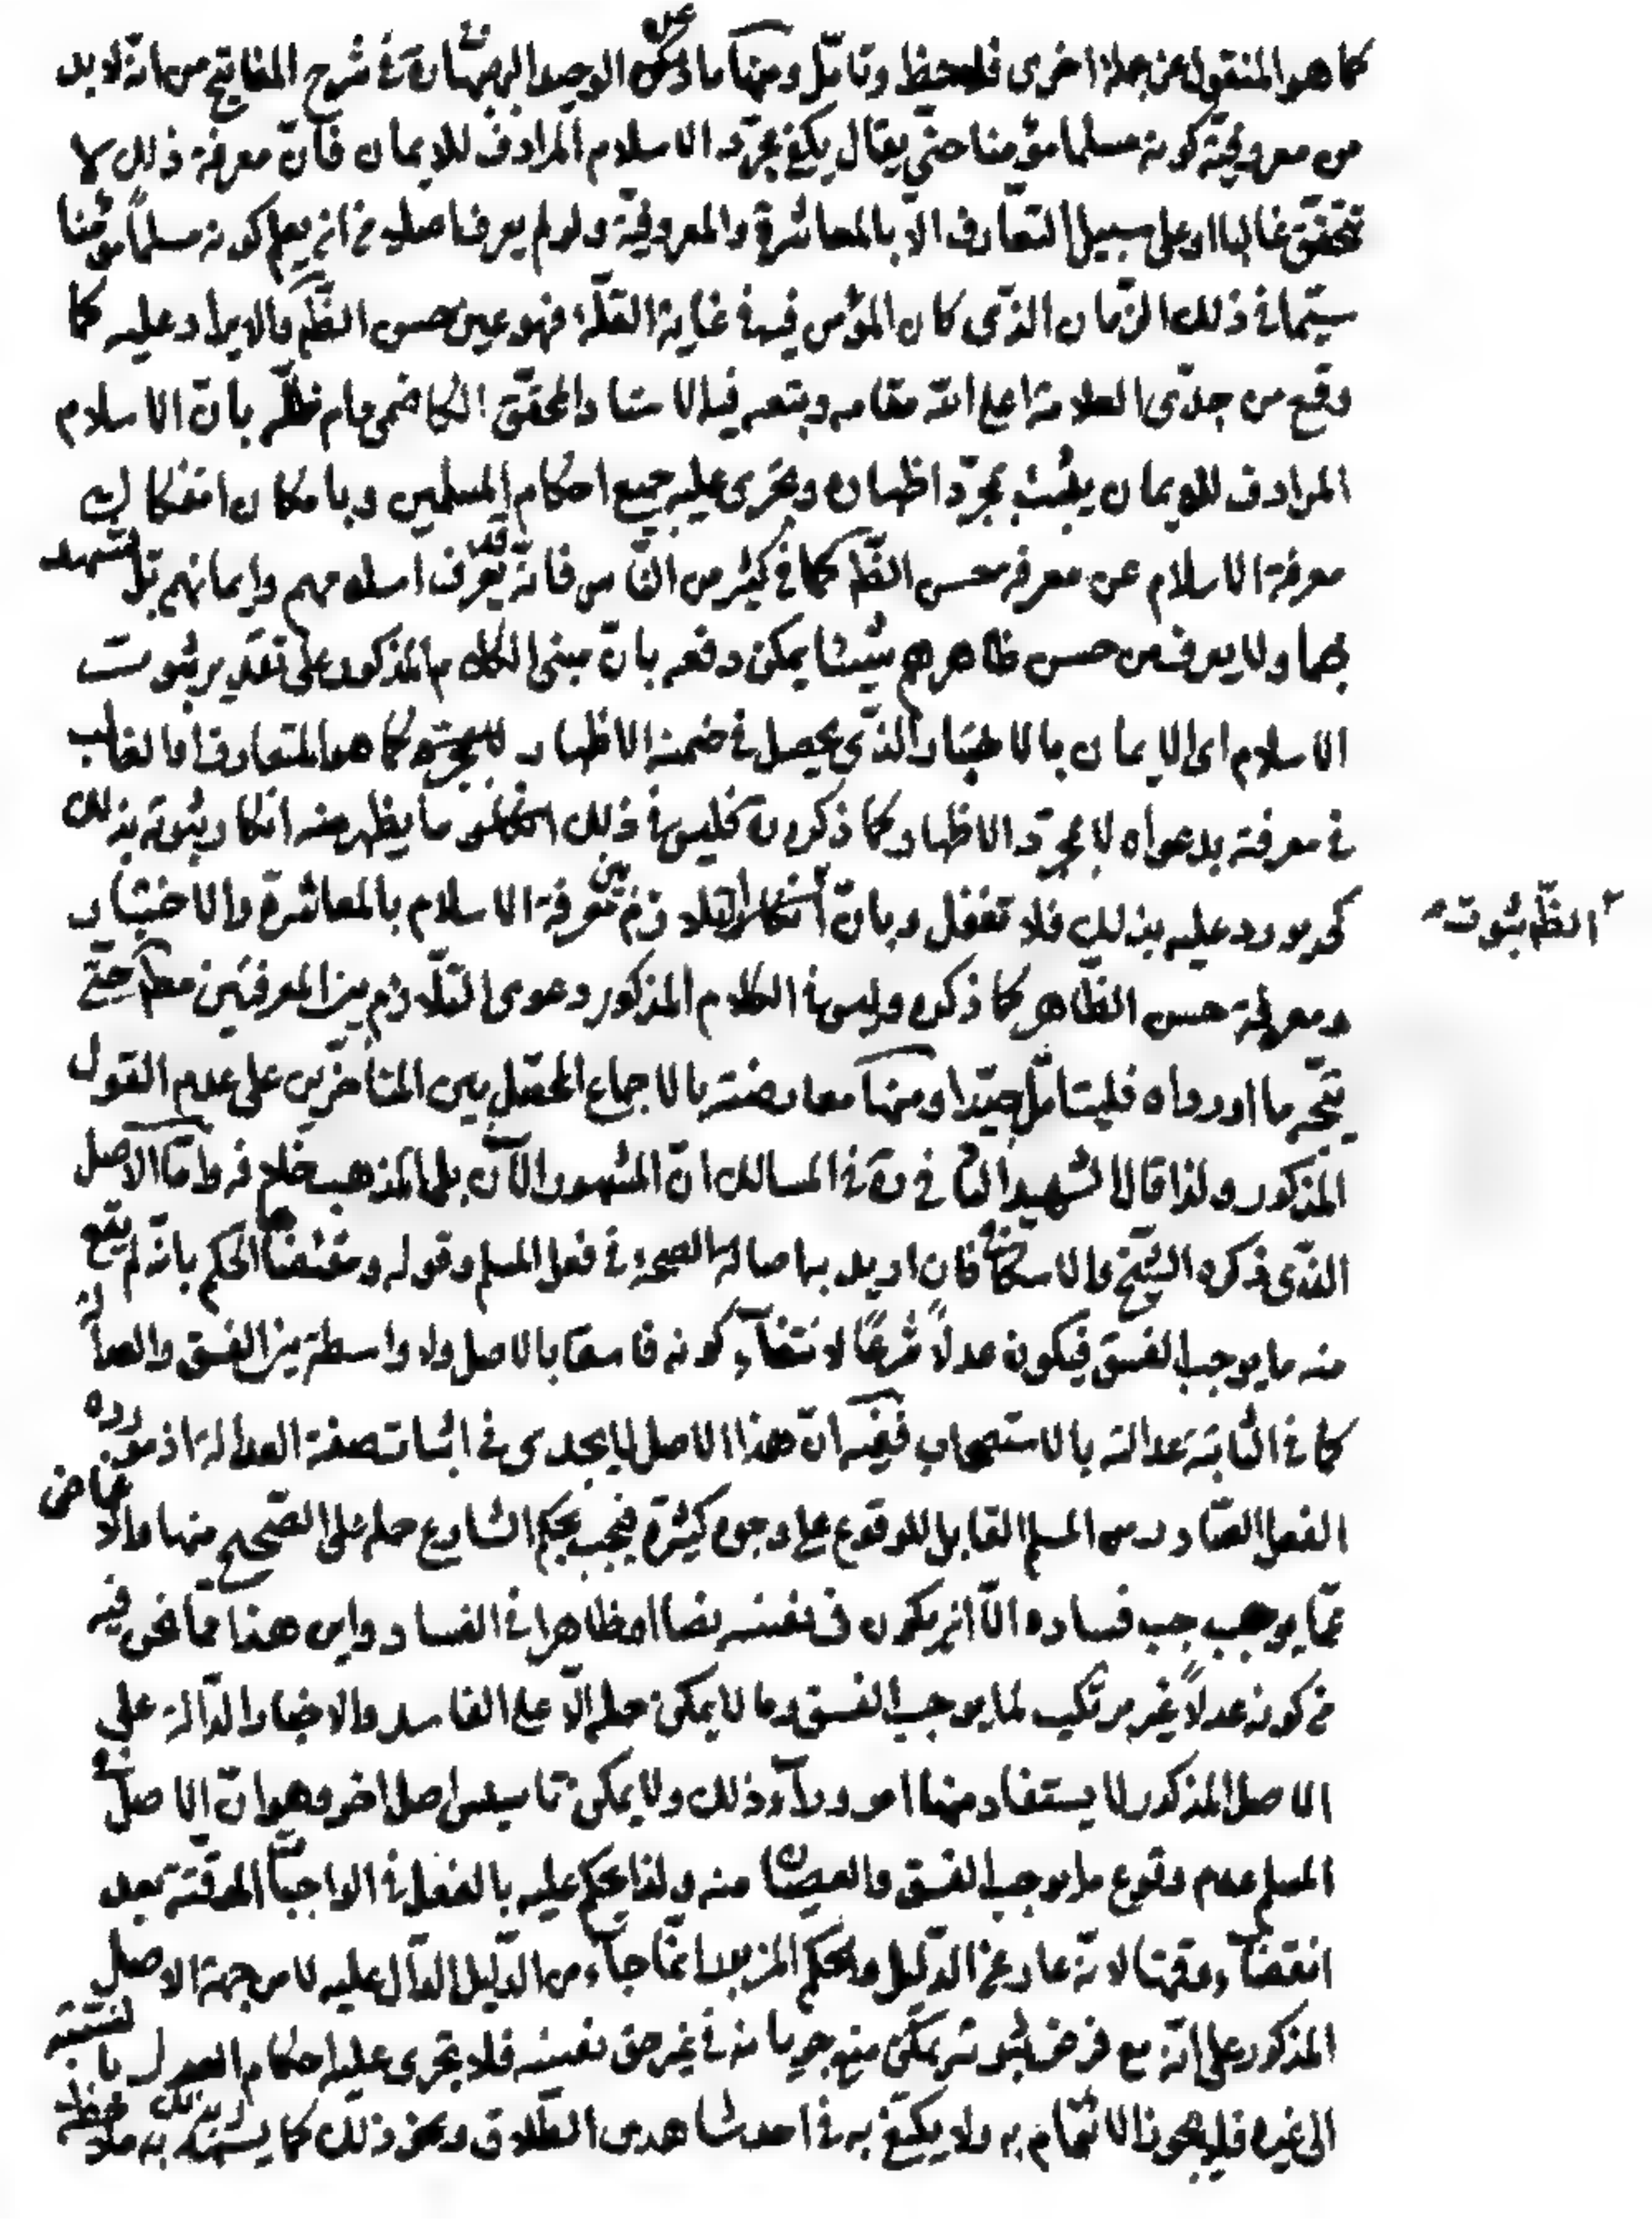 كما هو المنقول عن جملة اخرى فليلحظ وتامّل ومنها ما ذكره الوحيد البهبهانى فى شرح المفاتيح من انه لا بد
من معروفيّة كونه مسلما مؤمنا حتى يقال يكفى مجرّد الاسلام المرادف للايمان فانّ معرفة ذلك لا
تتحقق غالبا او على سبيل التعارف الّا بالمعاشرة والمعروفيّة ولو لم يعرف اصلا فمن اين يعلم كونه مسلماً مؤمنا
سيّما فى ذلك الزمان الذى كان المؤمن فيه فى غاية القلّة فهو عين حسن الظّم والايراد عليه كما
وقع من جدّى العلامة اعلى الله مقامه وتبعه فيه الاستاد المحقق الكاظمى دام ظلّه بانّ الاسلام
المرادف للايمان يثبت بمجرّد اظهاره وتجرى عليه جميع احكام المسلمين وبامكان انفكاك
معرفة الاسلام عن معرفة حسن الظّم كما فى كثير من النّاس فانّه قد يعرف اسلامهم وايمانهم بل تشهد
بهما ولا يعرف من حسن ظاهرهم شيئا يمكن دفعه بانّ مبنى الكلام المذكور على تقدير ثبوت
الاسلام اى الايمان بالاختبار الذى يحصل فى ضمنه الاظهار كما هو المتعارف او الغالب
فى معرفته بدعواه لا بمجرّد الاظهار كما ذكره فليس فى ذلك ما يظهر منه انكار ثبوته بذلك
كى يورد عليه بذلك فلا تغفل وبانّ التلازم بين معرفة الاسلام بالمعاشرة والاختبار
الظّم بثبوت
ومعرفة حسن الظّاهر كما ذكره وليس فى الكلام المذكور دعوى التلّازم بين المعرفتين مطلقا حتّى
يتّجه ما اورداه فليتامّل جيّدا ومنها معارضته بالاجماع المحصّل بين المتاخرين على عدم القول
المذكور ولذا قال الشهيد الثانى فى المسالك انّ المشهور الآن بل المذهب خلافه وامّا الاصل
الذى ذكره الشيخ والاسكافى فان اريد به اصالة الصحة فى فعل المسلم وقوله ومقتضاها الحكم بانّه لم يقع
منه ما يوجب الفسق فيكون عدلاً شرعًا لانتفاء كونه فاسقا بالاصل ولا واسطة بين الفسق والعدالة
كما فى الثابتة عدالته بالاستصحاب ففيه انّ هذا الاصل لا يجدى فى اثبات صفة العدالة اذ مورده
الفعل الصّادر من المسلم القابل للوقوع على وجوه كثيرة فيجب بحكم الشارع حمله على الصّحيح منها والاغماض
عمّا يوجب فساده الّا ان يكون فى نفسه نصا او ظاهرا فى الفساد واين هذا ممّا نحن فيه
من كونه عدلاً غير مرتكب لما يوجب الفسق وما لا يمكن حمله الّا على الفاسد والاخبار الدّالة على
الاصل المذكور لا يستفاد منها امر وراء ذلك ولا يمكن تاسيس اصل اخر وهو انّ الاصل فى
المسلم عدم وقوع ما يوجب الفسق والعصيان منه ولذا يحكم عليه بالفعل فى الواجبات الموقّتة بعد
انقضاء وقتها لانّه عار عن الدّليل والحكم المزبور انّما جاء من الدّليل الدّال عليه لا من جهة الاصل
المذكور على انّه مع فرض ثبوته يمكن منع جريانه فى غير حق نفسه فلا تجرى عليه احكام العدل بالنسبة
الى غيره فلا يجوز الائتمام به ولا يكتفى به فى احد شاهدى الطّلاق ونحو ذلك كما يشهد به ملاحظة